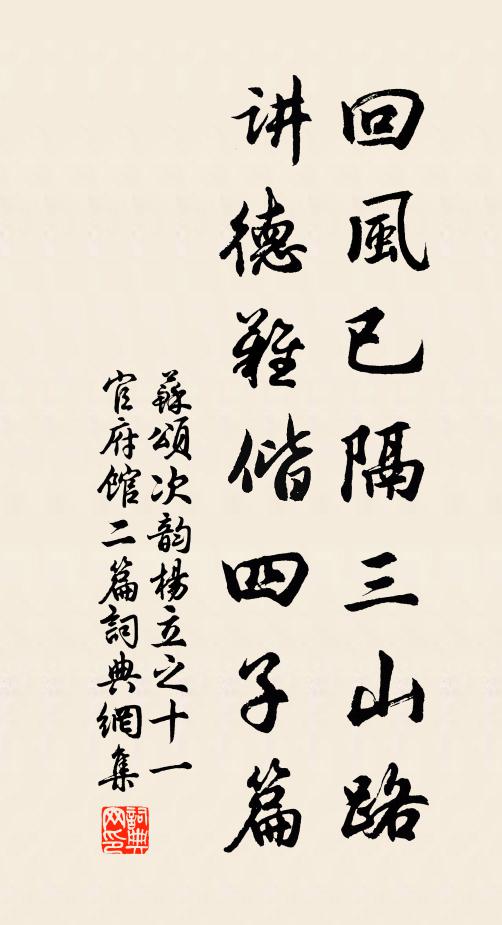 回風已隔三山路
讲德難偕四子篇
蘇頌次韵楊立之十一
官府館二篇詞典網集
詞典网印